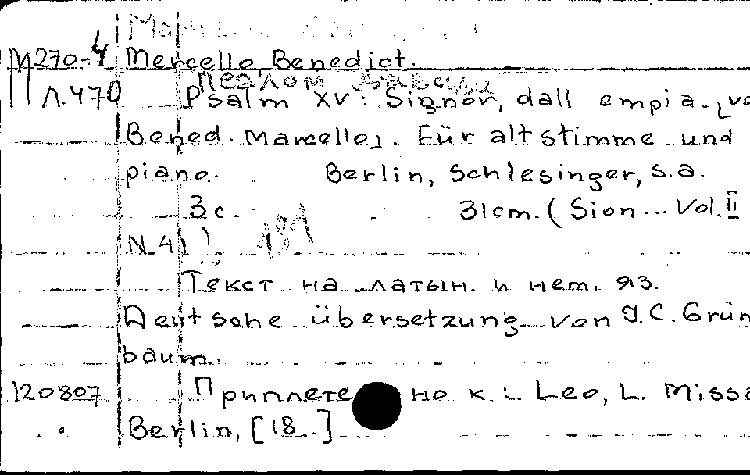 М270-4 Marcello, Benedict.
Л.470 Psalm XV: Signor, dall empia. [vo
Bened. Marcello]. Für altstimme und
piano. Berlin, Schlesinger, s.a.
3 с. 31cm. (Sion... Vol. II
N.4)
Текст на латын. и нем. яз.
Deutsche übersetzung von J.C. Grün
baum.
120807 Приплетено к: Leo, L. Missa
Berlin, [18..]